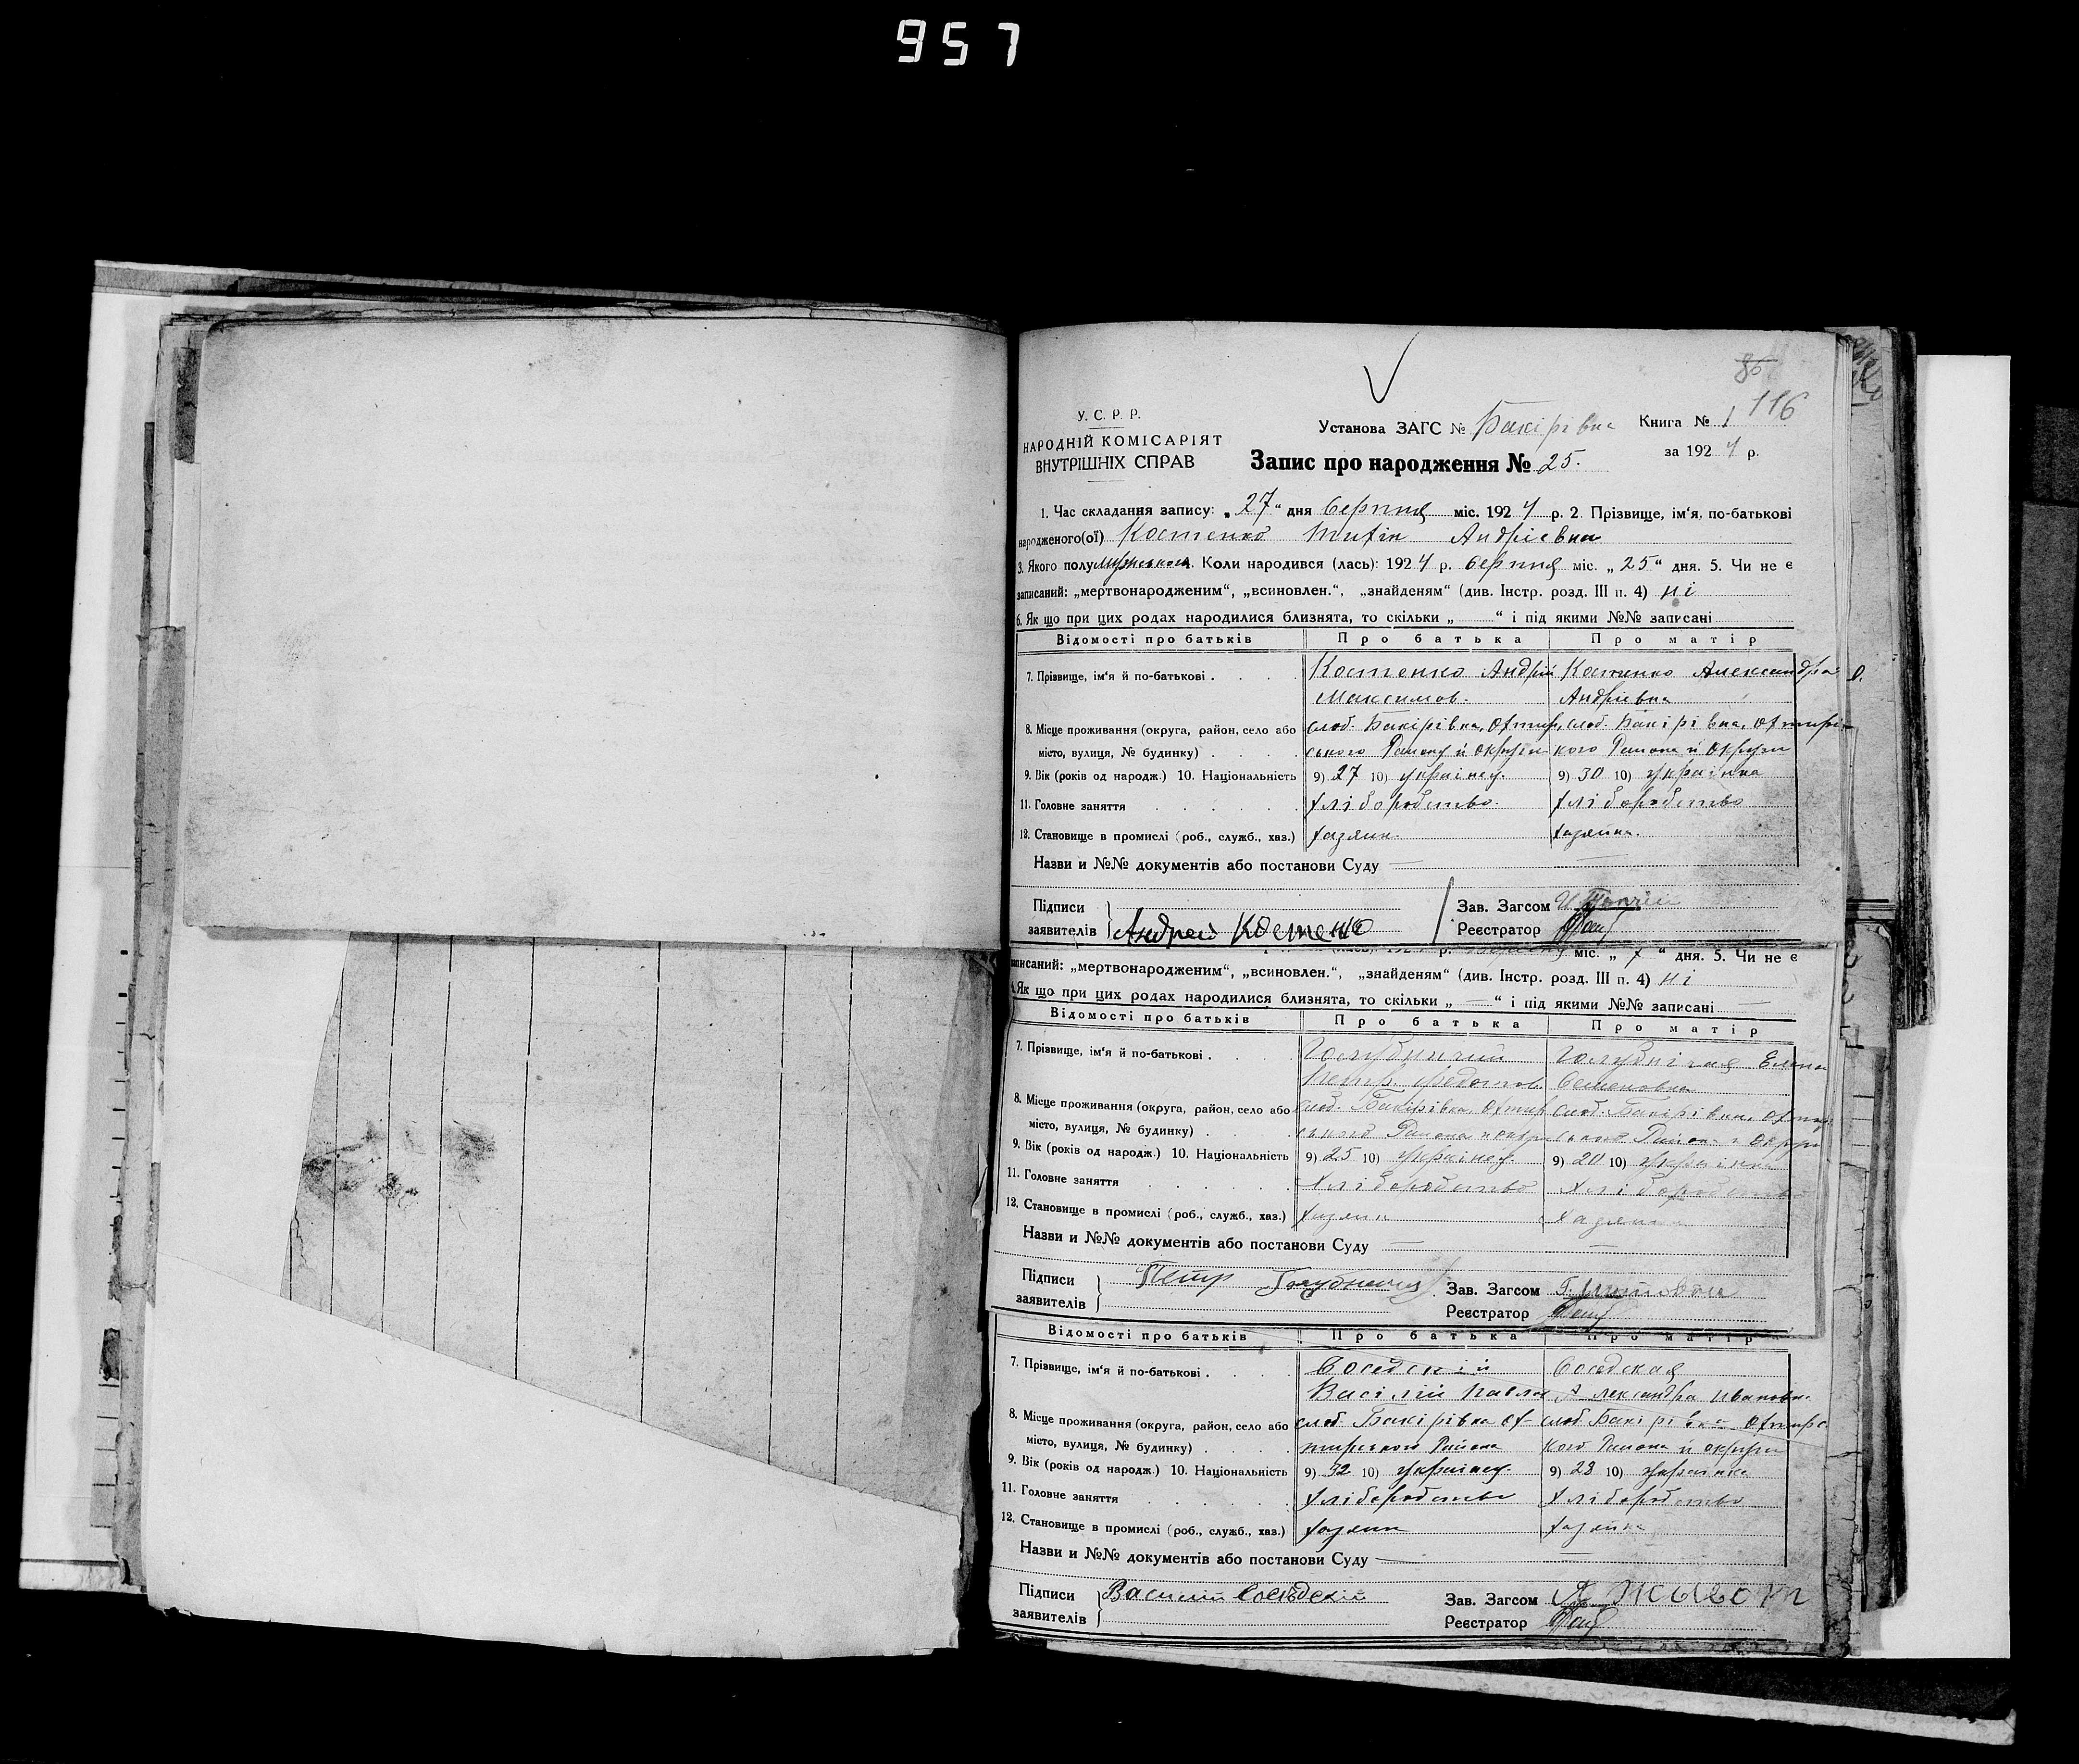 957
86
116
У. С. Р. Р.
НАРОДНІЙ КОМІСАРІЯТ
ВНУТРІШНІХ СПРАВ
Установа ЗАГС № Бакірівка Книга № 1
Запис про народження № 25. за 1924 р.
1. Час складання запису: „27“ дня серпня міс. 1924 р. 2. Прізвище, ім'я, по-батькові
народженого(ої) Костенко Андріевна
3. Якого полу Коли народився (лась): 1924 р. серпня міс. „25“ дня. 5. Чи не є
записаний: „мертвонародженим“, „всиновлен.“, „знайденям“ (див. Інстр. розд. III п. 4) ні
6. Як що при цих родах народилися близнята, то скільки „ “ і під якими №№ записані
Відомості про батьків Про батька Про матір
7. Прізвище, ім'я й по-батькові . . . . Костенко Андрій Костенко Александра
Максимов. Андріевна
8. Місце проживання (округа, район, село або слоб. Бакірівка, Охтир, слоб. Бакірівка, Охтирс
місто, вулиця, № будинку) . . . . ського Району й округи кого Раиона й округи
9. Вік (років од народж.) 10. Національність 9) 27 10) українец. 9) 30 10) українка
11. Головне заняття . . . . . хліборобство. хліборобство
12. Становище в промислі (роб., служб., хаз.) хазяин. хазяйка.
Назви и №№ документів або постанови Суду —
Підписи
заявителів Андрей Костенко
Зав. Загсом
Реєстратор
р. міс. „7“ дня. 5. Чи не є
записаний: „мертвонародженим“, „всиновлен.“, „знайденям“ (див. Інстр. розд. III п. 4) ні
6. Як що при цих родах народилися близнята, то скільки „ — “ і під якими №№ записані —
Відомості про батьків Про батька Про матір
7. Прізвище, ім'я й по-батькові . . . . Голубничий Голубничая Елена
Петр Федотов. Семеновна
8. Місце проживання (округа, район, село або слоб. Бакірівка, Охтир слоб. Бакірівка, Охтир
місто, вулиця, № будинку) . . . . ського Раиона и округи ського Раиона и округи
9. Вік (років од народж.) 10. Національність 9) 25 10) українец 9) 20 10) українка
11. Головне заняття . . . . . хліборобство хліборобство
12. Становище в промислі (роб., служб., хаз.) хазяин хазяйка
Назви и №№ документів або постанови Суду —
Підписи Петр Голубничий
заявителів
Зав. Загсом
Реєстратор
Відомості про батьків Про батька Про матір
7. Прізвище, ім'я й по-батькові . . . . Соседскій Соседская
Васілій Павлов Александра Ивановн.
8. Місце проживання (округа, район, село або слоб. Бакірівка Ох- слоб. Бакірівка Охтирс
місто, вулиця, № будинку) . . . . тирського Раиона кого Раиона й округи
9. Вік (років од народж.) 10. Національність 9) 32 10) українец 9) 28 10) українка
11. Головне заняття . . . . . хліборобство хліборобство
12. Становище в промислі (роб., служб., хаз.) хазяин хазяйка
Назви и №№ документів або постанови Суду —
Підписи Василий Соседский
заявителів
Зав. Загсом
Реєстратор